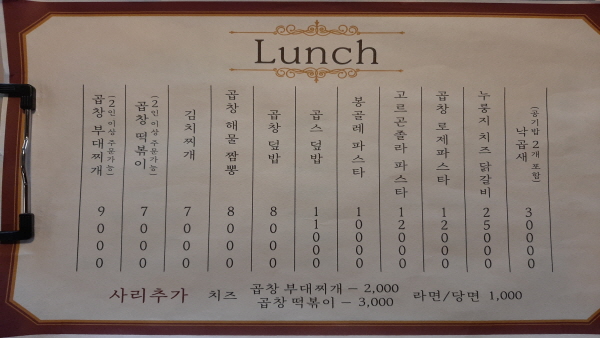 Lunch
곱창 부대찌개 (2인 이상 주문가능) 9000
곱창 떡볶이 (2인 이상 주문가능) 7000
김치찌개 7000
곱창 해물 짬뽕 8000
곱창 덮밥 8000
곱스 덮밥 11000
봉골레 파스타 10000
고르곤졸라 파스타 12000
곱창 로제파스타 12000
누룽지 치즈 닭갈비 25000
낙곱새 (공기밥 2개 포함) 30000
사리추가 치즈 곱창 부대찌개 – 2,000
곱창 떡볶이 – 3,000
라면/당면 1,000